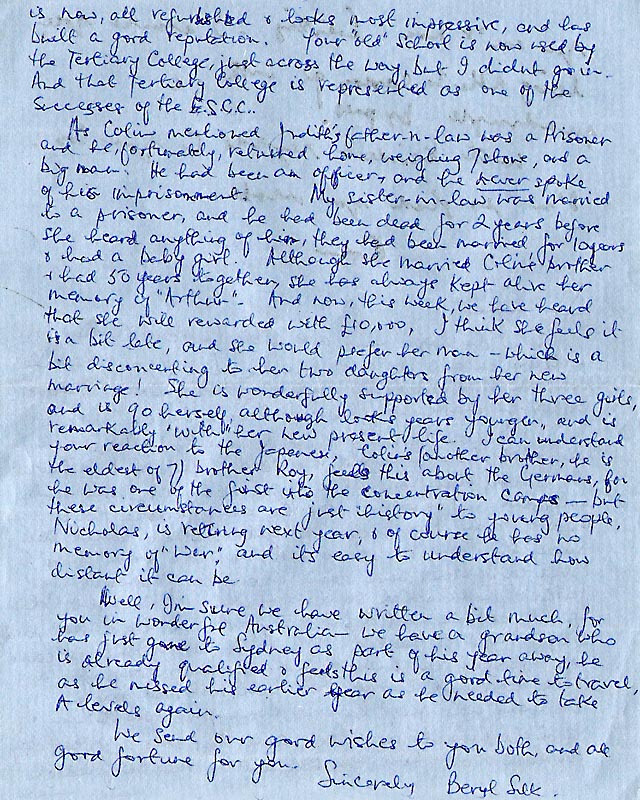 is now, all refurbished & looks most impressive, and has
built a good reputation. Your "old" School is now used by
the Tertiary College, just across the way, but I didn't go in.
And that Tertiary College is represented as one of the
Successes of the E.S.C.C..
As Colin mentioned Judith's father-in-law was a Prisoner
and he, fortunately, returned home, weighing 7 stone, and a
big man. He had been an officer, and he never spoke
of his imprisonment. My sister-in-law was married
to a prisoner, and he had been dead for 2 years before
she heard anything of him, they had been married for 10 years
& had a baby girl. Although she married Colin's brother
& had 50 years together, she has always kept alive her
memory of "Arthur". And now, this week, we have heard
that she will rewarded with £10,000, I think she feels it
is a bit late, and she would prefer her man – which is a
bit disconcerting to her two daughters from her new
marriage! She is wonderfully supported by her three girls,
and is 90 herself, although looks years younger, and is
remarkably "with" her new present life. I can understand
your reaction to the Japanese, Colin's (another brother, he is
the eldest of 7) brother Roy, feels this about the Germans, for
he was one of the first into the concentration camps — but
these circumstances are just "history" to young people,
Nicholas, is retiring next year, & of course he has no
memory of "War", and its easy to understand how
distant it can be.
Well, I'm sure, we have written a bit much, for
you in wonderful Australia – we have a grandson who
has just gone to Sydney as part of his year away, he
is already qualified & feels this is a good time to travel,
as he missed his earlier year as he needed to take
A levels again.
We send our good wishes to you both, and all
good fortune for you.
Sincerely Beryl Silk.